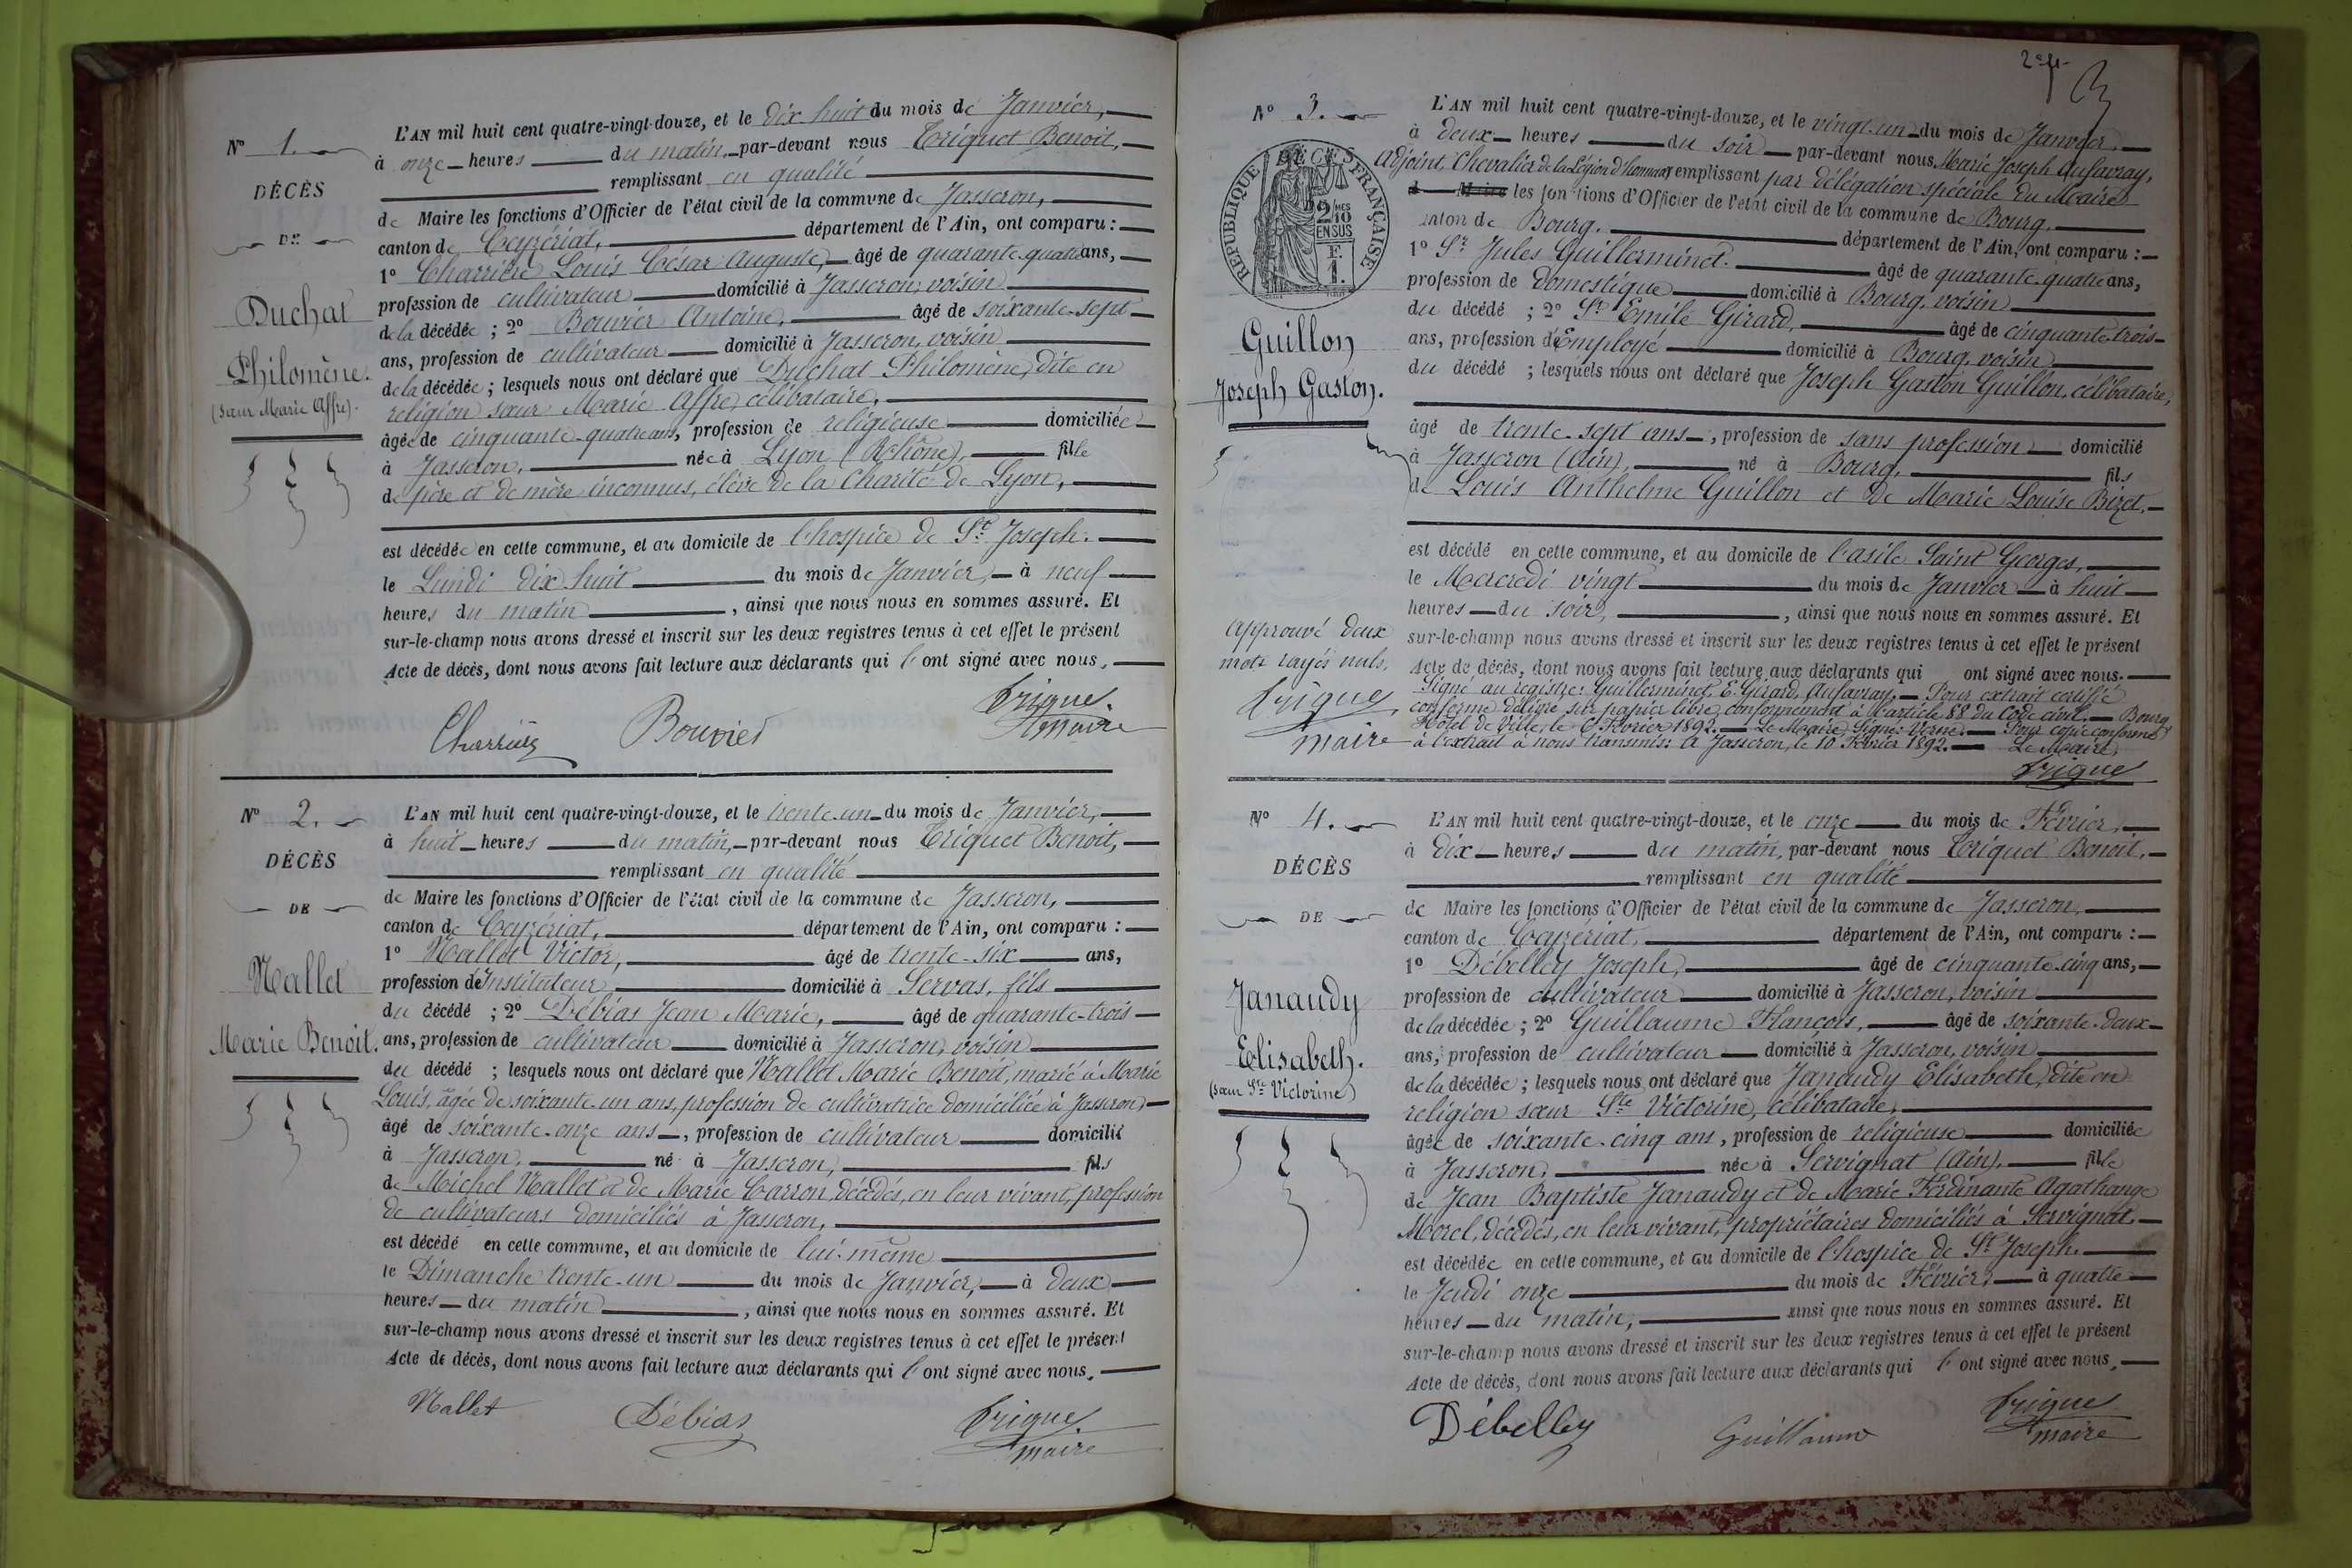 N° 1.
DÉCÈS
DE
Duchat
Philomène.
(sœur Marie Affre).
L'AN mil huit cent quatre-vingt-douze, et le dix huit du mois de Janvier,
à onze heures du matin, par-devant nous Triquet Benoit,
remplissant en qualité
de Maire les fonctions d'Officier de l'état civil de la commune de Jasseron,
canton de Ceyzériat, département de l'Ain, ont comparu :
1° Charrière Louis César Auguste, âgé de quarante-quatre ans,
profession de cultivateur domicilié à Jasseron, voisin
de la décédée ; 2° Bouvier Antoine, âgé de soixante-sept
ans, profession de cultivateur domicilié à Jasseron, voisin
de la décédée ; lesquels nous ont déclaré que Duchat Philomène, dite en
religion sœur Marie Affre, célibataire,
âgée de cinquante-quatre ans, profession de religieuse domiciliée
à Jasseron, née à Lyon (Rhône), fille
de père et de mère inconnus, élève de la Charité de Lyon,
est décédée en cette commune, et au domicile de l'hospice de St Joseph.
le Lundi dix huit du mois de Janvier, à neuf
heures du matin, ainsi que nous nous en sommes assuré. Et
sur-le-champ nous avons dressé et inscrit sur les deux registres tenus à cet effet le présent
Acte de décès, dont nous avons fait lecture aux déclarants qui l'ont signé avec nous,
Charrière Bouvier Triquet
maire
N° 2.
DÉCÈS
DE
Nallet
Marie Benoit.
L'AN mil huit cent quatre-vingt-douze, et le trente-un du mois de Janvier,
à huit heures du matin, par-devant nous Triquet Benoit,
remplissant en qualité
de Maire les fonctions d'Officier de l'état civil de la commune de Jasseron,
canton de Ceyzériat, département de l'Ain, ont comparu :
1° Nallet Victor, âgé de trente-six ans,
profession de Instituteur domicilié à Servas, fils
du décédé ; 2° Débias Jean Marie, âgé de quarante-trois
ans, profession de cultivateur domicilié à Jasseron, voisin
du décédé ; lesquels nous ont déclaré que Nallet Marie Benoit, marié à Marie
Louis, âgée de soixante-un ans, profession de cultivatrice domiciliée à Jasseron,
âgé de soixante-onze ans, profession de cultivateur domicilié
à Jasseron, né à Jasseron, fils
de Michel Nallet et de Marie Carron, décédés, en leur vivant, profession
de cultivateurs domiciliés à Jasseron,
est décédé en cette commune, et au domicile de lui-même
le Dimanche trente-un du mois de Janvier, à deux
heures du matin, ainsi que nous nous en sommes assuré. Et
sur-le-champ nous avons dressé et inscrit sur les deux registres tenus à cet effet le présent
Acte de décès, dont nous avons fait lecture aux déclarants qui l'ont signé avec nous,
Nallet Débias Triquet
maire
2e f.
N° 3.
DÉCÈS
RÉPUBLIQUE FRANÇAISE
2/10 MES
EN SUS
F.
1.
Guillon
Joseph Gaston.
Approuvé deux
mots rayés nuls,
Triquet
maire
L'AN mil huit cent quatre-vingt-douze, et le vingt-un du mois de Janvier,
à deux heures du soir par-devant nous Marie Joseph Aufavray,
Adjoint, Chevalier de la Légion d'honneur remplissant par délégation spéciale du Maire
les fonctions d'Officier de l'état civil de la commune de Bourg,
canton de Bourg, département de l'Ain, ont comparu :
1° Sr Jules Guillerminet, âgé de quarante-quatre ans,
profession de Domestique domicilié à Bourg, voisin
du décédé ; 2° Sr Emile Girard, âgé de cinquante-trois
ans, profession d'Employé domicilié à Bourg, voisin
du décédé ; lesquels nous ont déclaré que Joseph Gaston Guillon, célibataire,
âgé de trente-sept ans, profession de sans profession domicilié
à Jasseron (Ain), né à Bourg, fils
de Louis Anthelme Guillon et de Marie Louise Bizet,
est décédé en cette commune, et au domicile de l'asile Saint Georges,
le Mercredi vingt du mois de Janvier à huit
heures du soir, ainsi que nous nous en sommes assuré. Et
sur-le-champ nous avons dressé et inscrit sur les deux registres tenus à cet effet le présent
Acte de décès, dont nous avons fait lecture aux déclarants qui ont signé avec nous.
Signé au registre: Guillerminet, E. Girard, Aufavray. Pour extrait certifié
conforme délivré sur papier libre, conformément à l'article 88 du Code civil. Bourg,
Hôtel de Ville, le 6 Février 1892. Le Maire, Signé: Verne. Pour copie conforme
à l'extrait à nous transmis: à Jasseron, le 10 Février 1892. Le Maire,
Triquet
N° 4.
DÉCÈS
DE
Janaudy
Elisabeth.
(sœur Ste Victorine)
L'AN mil huit cent quatre-vingt-douze, et le onze du mois de Février,
à dix heures du matin, par-devant nous Triquet Benoit,
remplissant en qualité
de Maire les fonctions d'Officier de l'état civil de la commune de Jasseron,
canton de Ceyzériat, département de l'Ain, ont comparu :
1° Débelley Joseph, âgé de cinquante-cinq ans,
profession de cultivateur domicilié à Jasseron, voisin
de la décédée ; 2° Guillaume François, âgé de soixante-deux
ans, profession de cultivateur domicilié à Jasseron, voisin
de la décédée ; lesquels nous ont déclaré que Janaudy Elisabeth, dite en
religion sœur Ste Victorine, célibataire,
âgée de soixante-cinq ans, profession de religieuse domiciliée
à Jasseron, née à Servignat (Ain), fille
de Jean Baptiste Janaudy et de Marie Ferdinante Agathange
Morel, décédés, en leur vivant, propriétaires domiciliés à Servignat,
est décédée en cette commune, et au domicile de l'hospice de St Joseph.
le Jeudi onze du mois de Février, à quatre
heures du matin, ainsi que nous nous en sommes assuré. Et
sur-le-champ nous avons dressé et inscrit sur les deux registres tenus à cet effet le présent
Acte de décès, dont nous avons fait lecture aux déclarants qui l'ont signé avec nous,
Débelley Guillaume Triquet
maire